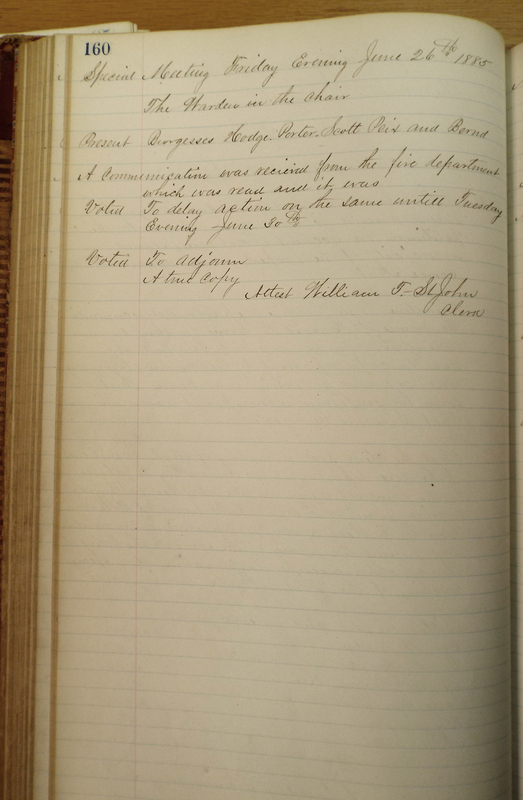 160
Special Meeting Friday Evening June 26th 1885
The Warden in the chair
Present Burgesses Hodge. Porter. Scott Peix and Bernd
A Communication was recieved from the fire department
which was read and it was
Voted To delay action on the same untill Tuesday
Evening June 30th
Voted To adjourn
A true Copy
Attest William F. St John
Clerk